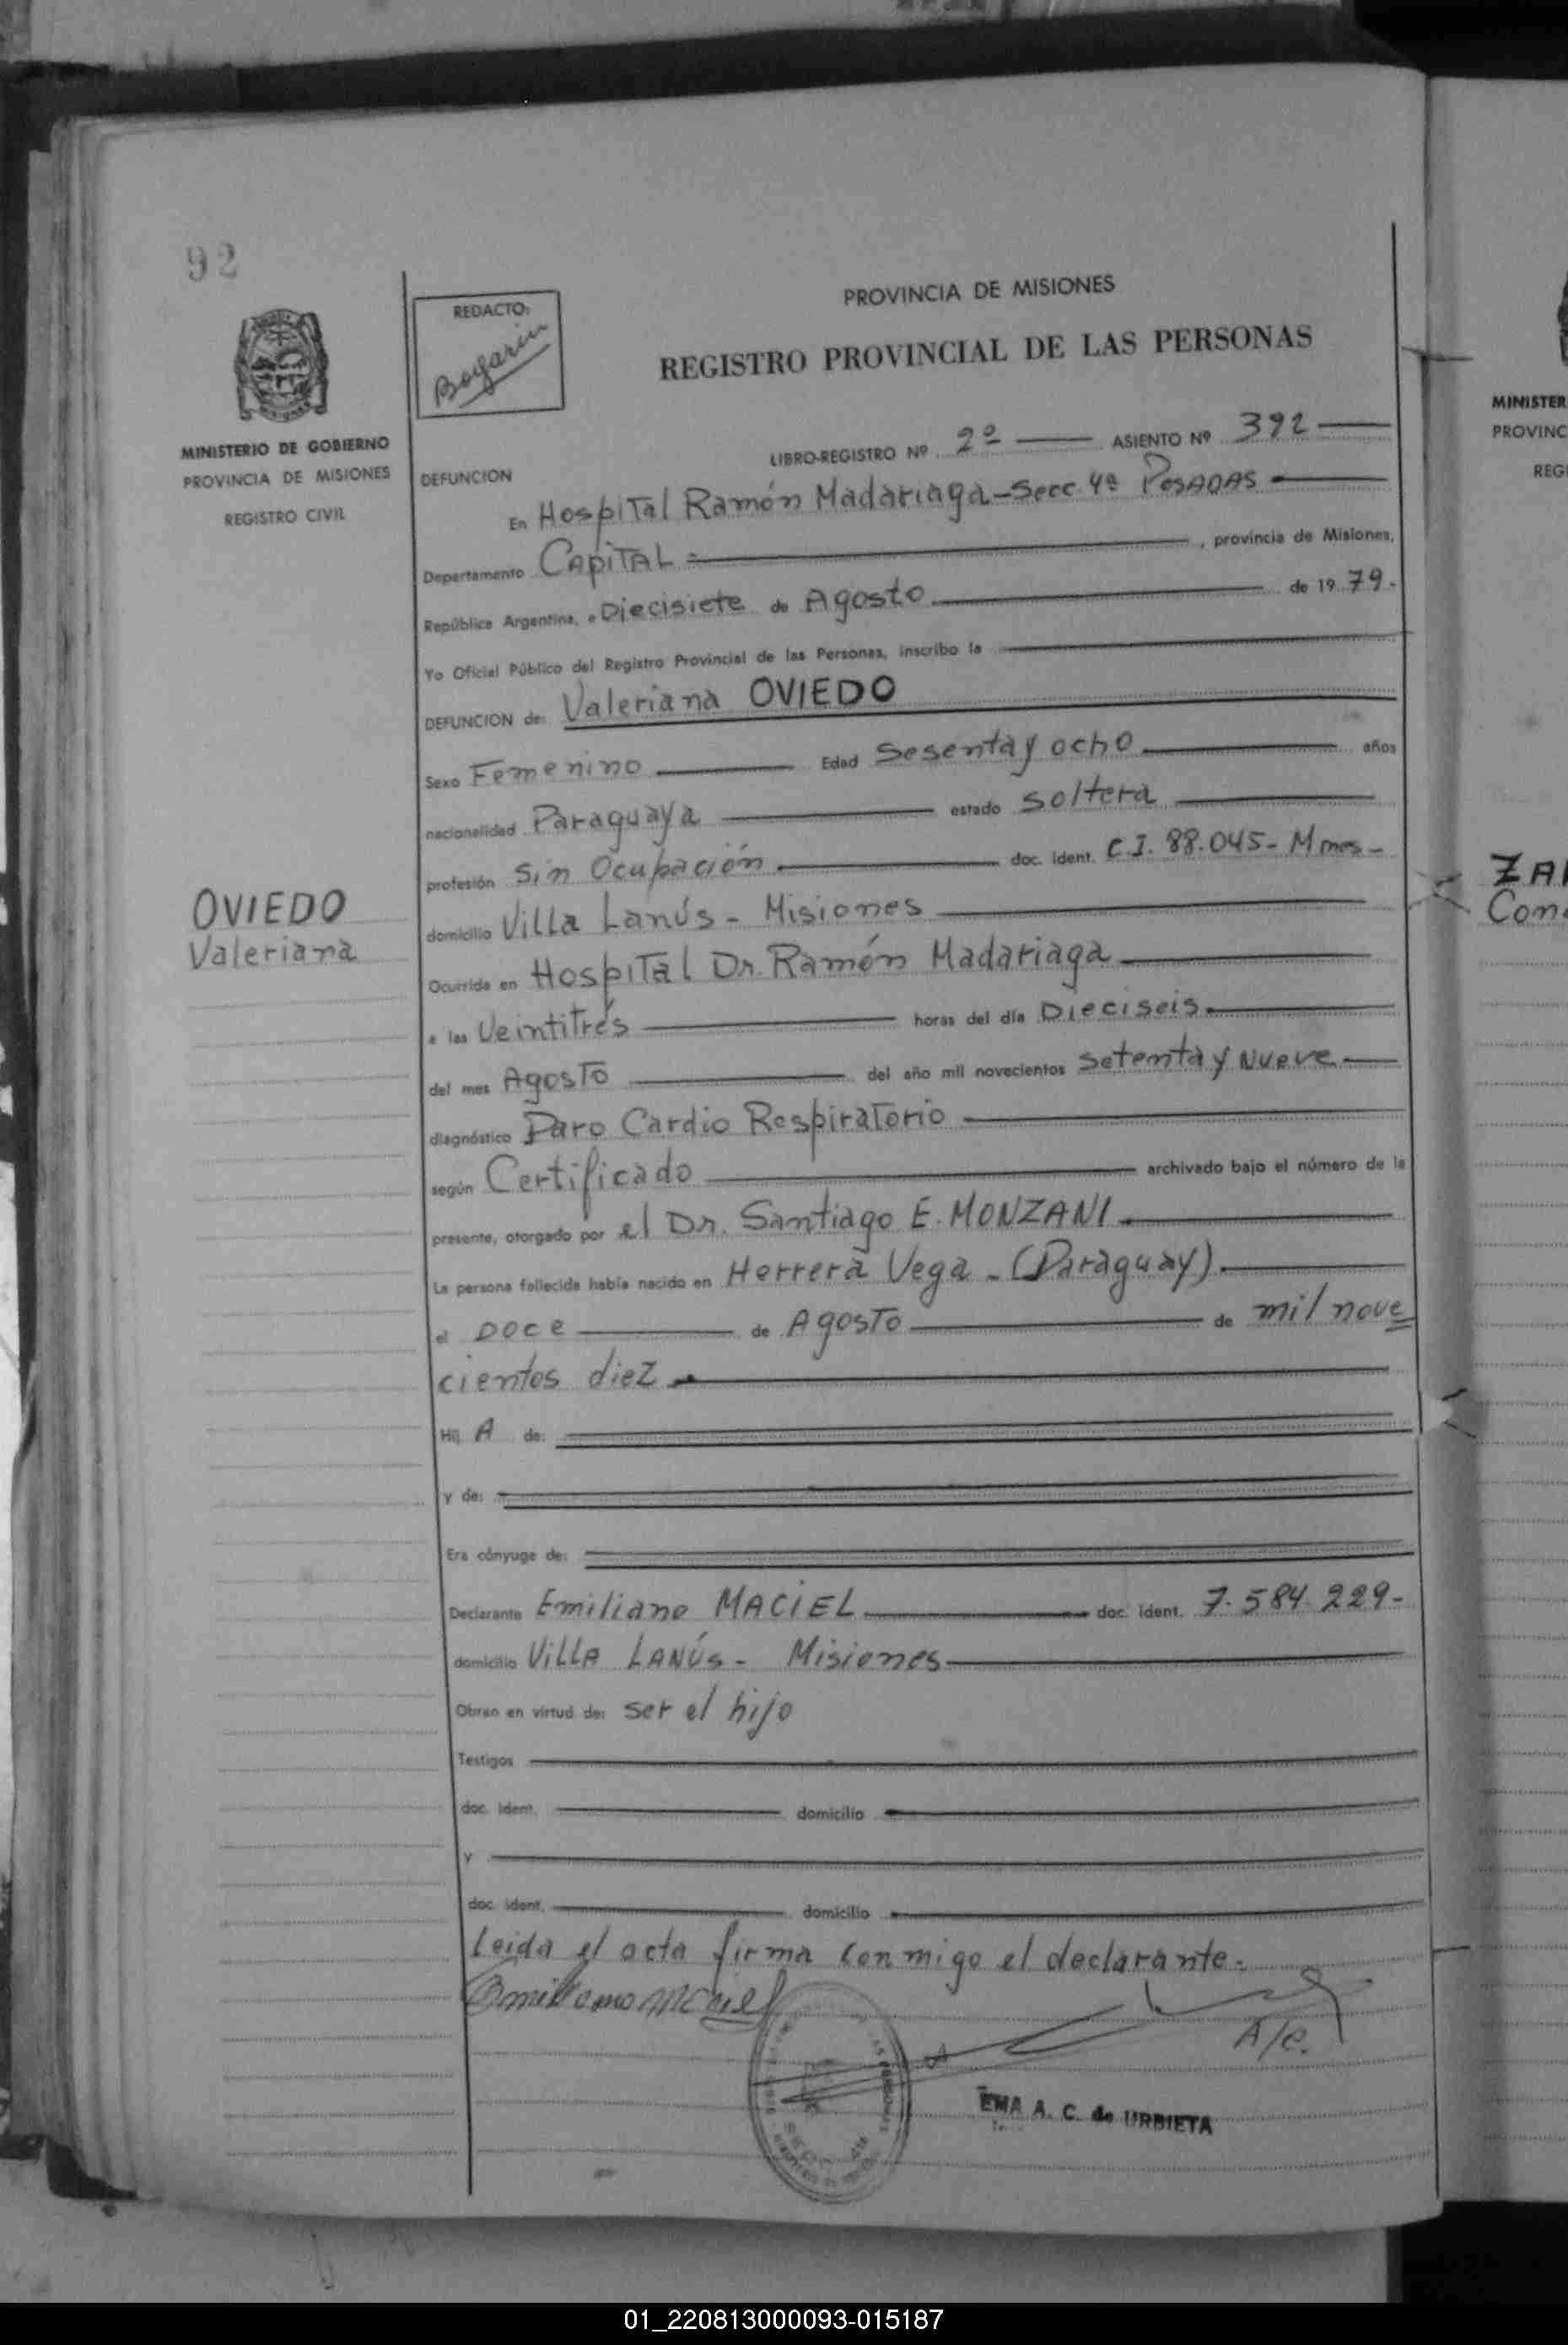 92
REDACTO:
Bogarin
PROVINCIA DE MISIONES
REGISTRO PROVINCIAL DE LAS PERSONAS
MINISTERIO DE GOBIERNO
PROVINCIA DE MISIONES
REGISTRO CIVIL
LIBRO-REGISTRO Nº 2º ASIENTO Nº 392
DEFUNCION
En Hospital Ramón Madariaga - Secc. 4ª POSADAS
Departamento CAPITAL , provincia de Misiones,
República Argentina, a Diecisiete de Agosto de 19 79.
Yo Oficial Público del Registro Provincial de las Personas, inscribo la
DEFUNCION de: Valeriana OVIEDO
Sexo Femenino Edad Sesenta y ocho años
nacionalidad Paraguaya estado soltera
profesión Sin Ocupación doc. ident. C.I. 88.045- Mnes-
OVIEDO
Valeriana
domicilio Villa Lanús - Misiones
Ocurrida en Hospital Dr. Ramón Madariaga
a las Veintitrés horas del día Dieciseis
del mes Agosto del año mil novecientos setenta y Nueve
diagnóstico Paro Cardio Respiratorio
según Certificado archivado bajo el número de la
presente, otorgado por el Dr. Santiago E. MONZANI
La persona fallecida había nacido en Herrera Vega - (Paraguay).
el DOCE de Agosto de mil nove
cientos diez
Hij A de:
y de:
Era cónyuge de:
Declarante Emiliano MACIEL doc. ident. 7.584.229-
domicilio Villa LANÚS - Misiones
Obran en virtud de: ser el hijo
Testigos
doc. ident. domicilio
y
doc. ident. domicilio
leida el acta firma conmigo el declarante-
Emiliano Maciel
A/c.
EMA A. C. de URBIETA
MINISTER
PROVINC
REGI
ZA
Con
01_220813000093-015187